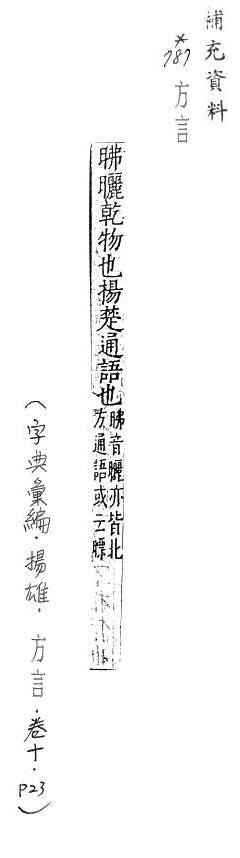 補充資料
*787 方言
昲曬乾物也揚楚通語也
昲音曬亦皆北
方通語或云瞟
(字典彙編．揚雄．方言．卷十．P23)